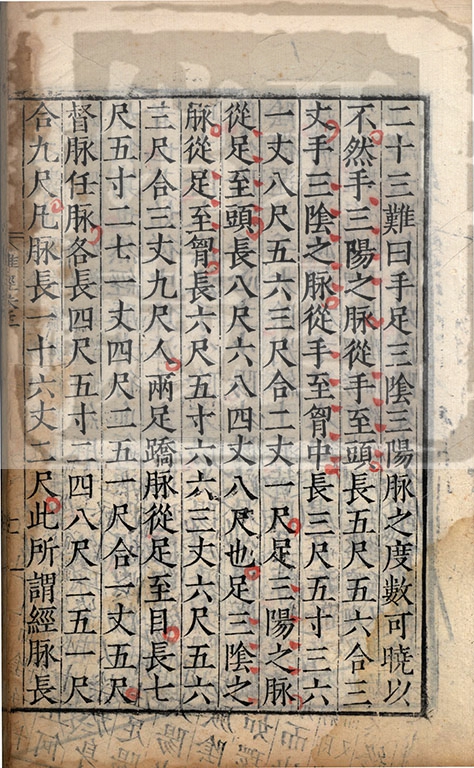 二十三難曰手足三陰三陽脉之度數可曉以
不然手三陽之脉從手至頭長五尺五六合三
丈手三陰之脉從手至胷中長三尺五寸三六
一丈八尺五六三尺合二丈一尺足三陽之脉
從足至頭長八尺六八四丈八尺也足三陰之
脉從足至胷長六尺五寸六六三丈六尺五六
三尺合三丈九尺人兩足蹻脉從足至目長七
尺五寸二七一丈四尺二五一尺合一丈五尺
督脉任脉各長四尺五寸二四八尺二五一尺
合九尺凡脉長一十六丈二尺此所謂經脉長